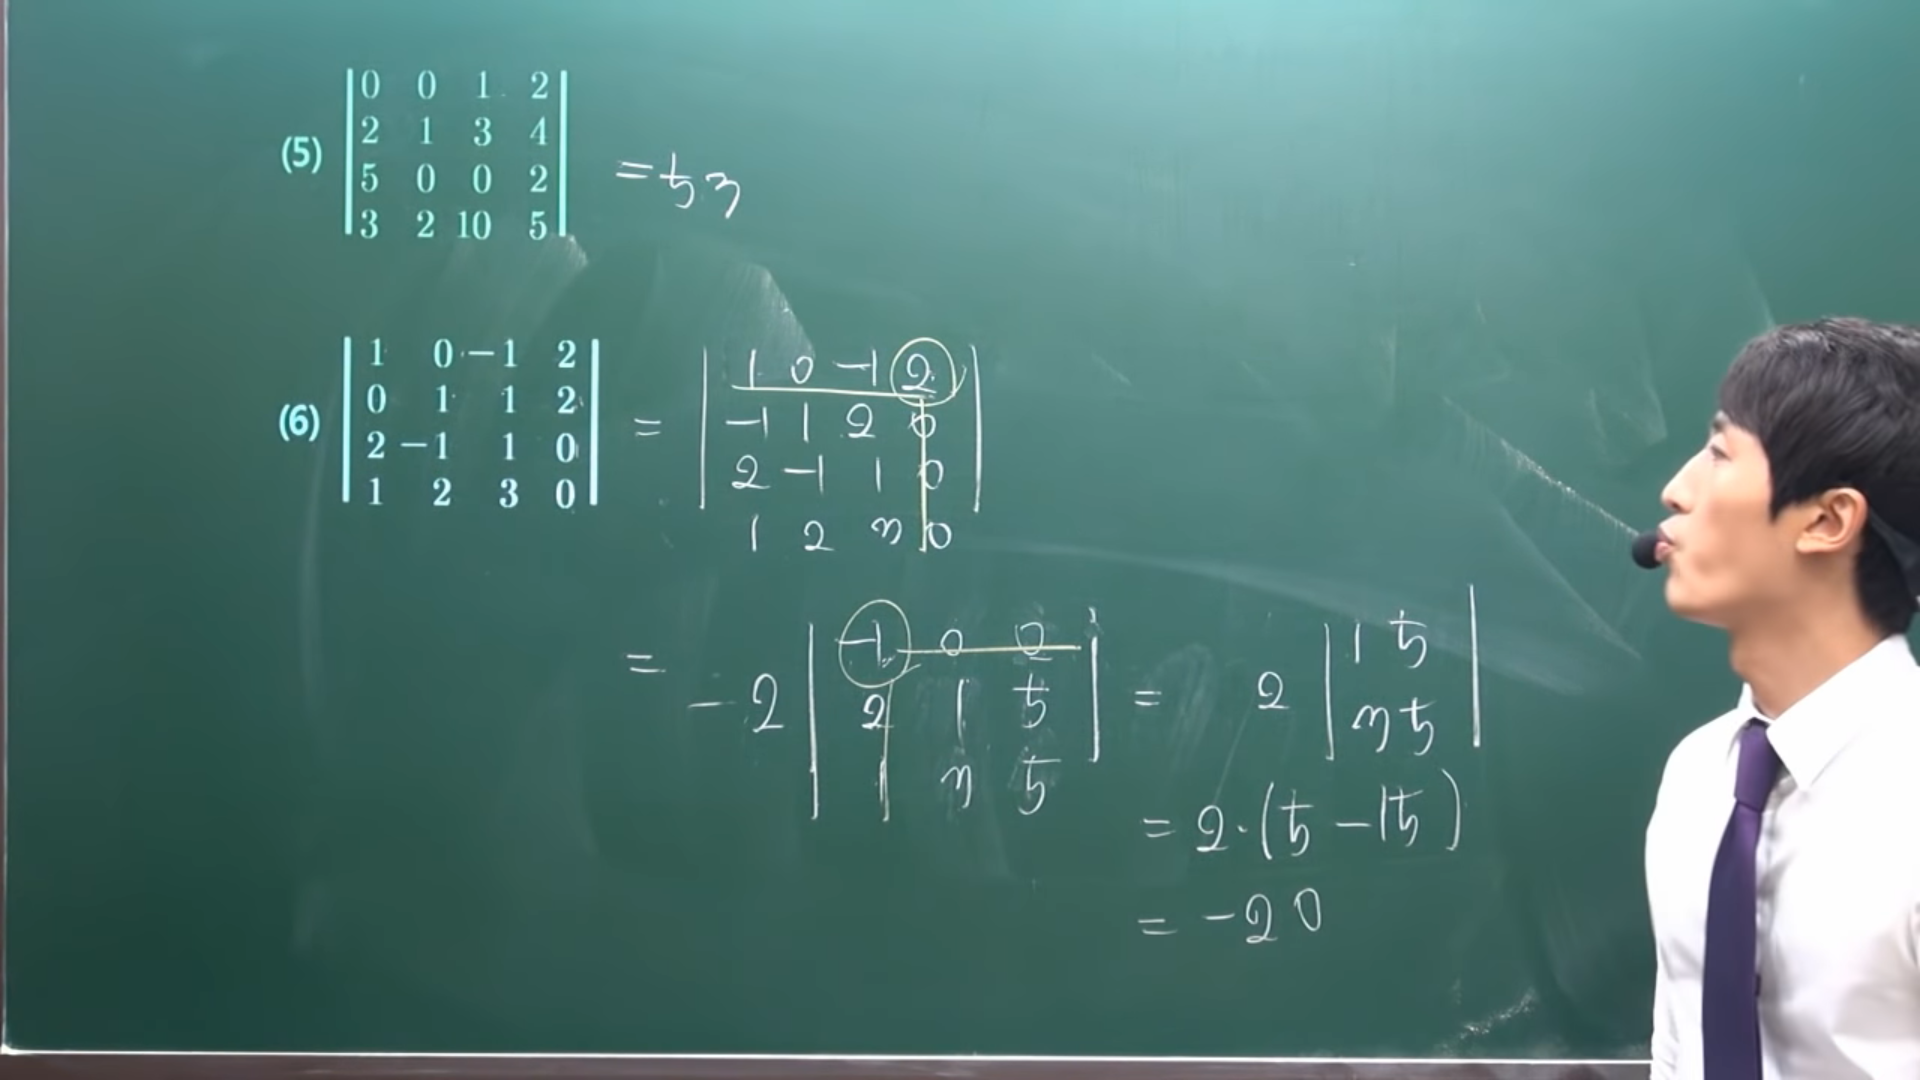 (5)
0 0 1 2
2 1 3 4
5 0 0 2
3 2 10 5
= 53
(6)
1 0 -1 2
0 1 1 2
2 -1 1 0
1 2 3 0
=
1 0 -1 2
-1 1 2 0
2 -1 1 0
1 2 3 0
= -2
-1 0 0
2 1 5
1 3 5
= 2
1 5
3 5
= 2·(5-15)
= -20